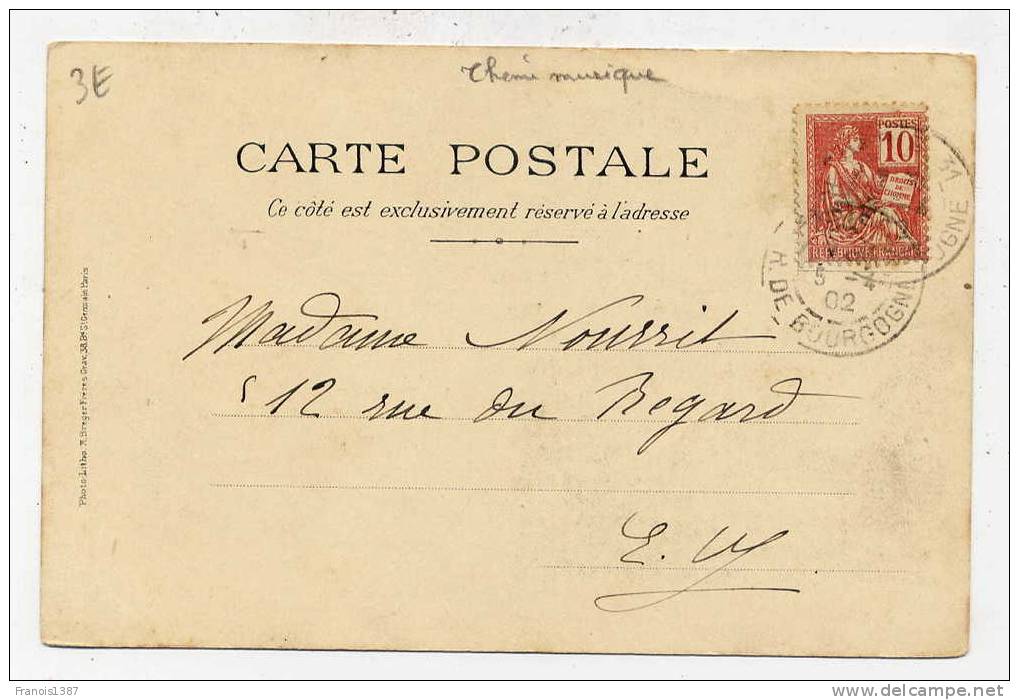 3E
Theme musique
CARTE POSTALE
Ce côté est exclusivement réservé à l'adresse
POSTES
10
DROITS
DE
L'HOMME
5
02
R. DE BOURGOGNE
Madame Nourrit
12 rue du Regard
E. V
Photo-Litho. A. Breger Frères Grav. 38, Bd St Germain Paris
Franois1387
www.delcampe.net